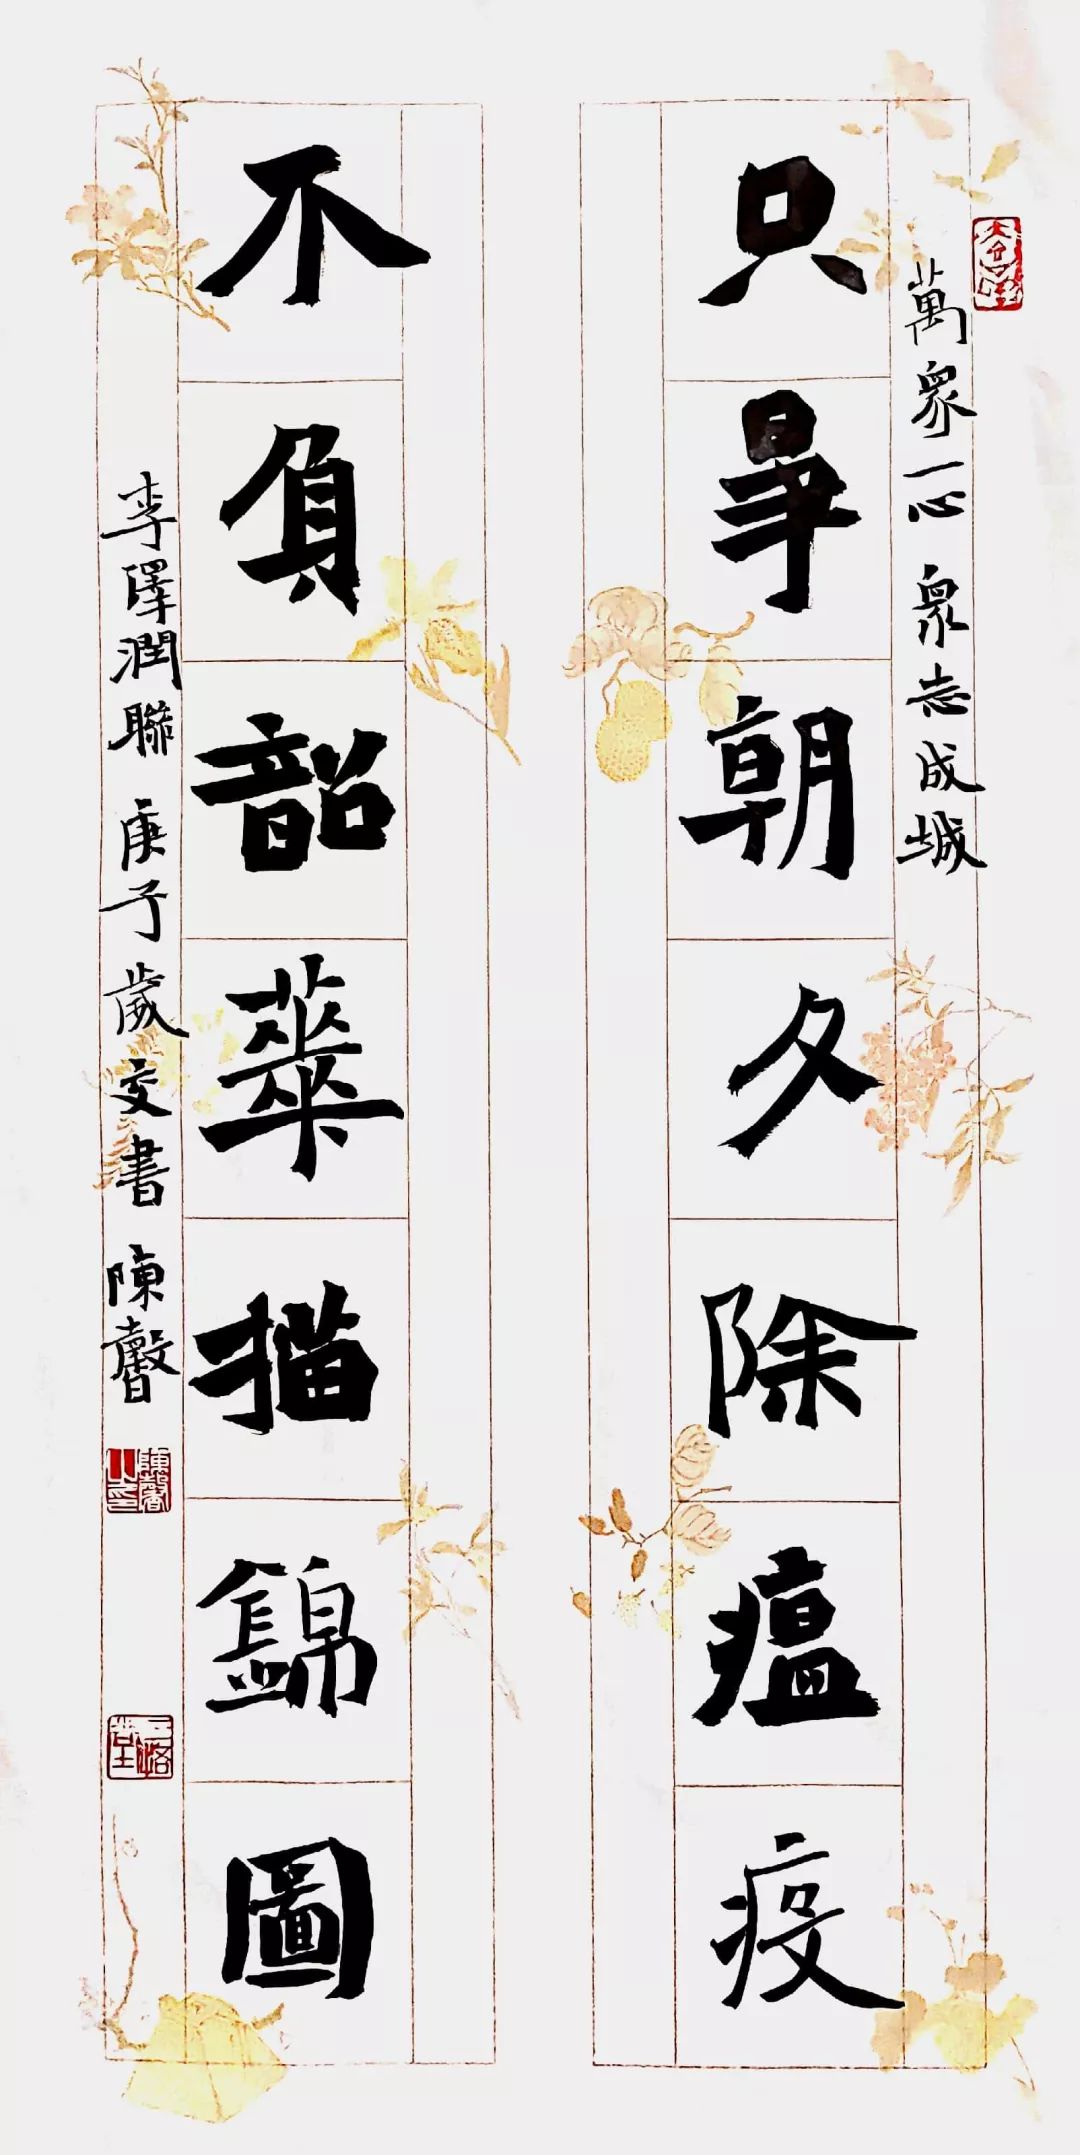 萬衆一心 衆志成城
只爭朝夕除瘟疫
不負韶華描錦圖
李澤潤聯 庚子歲交書 陳馨